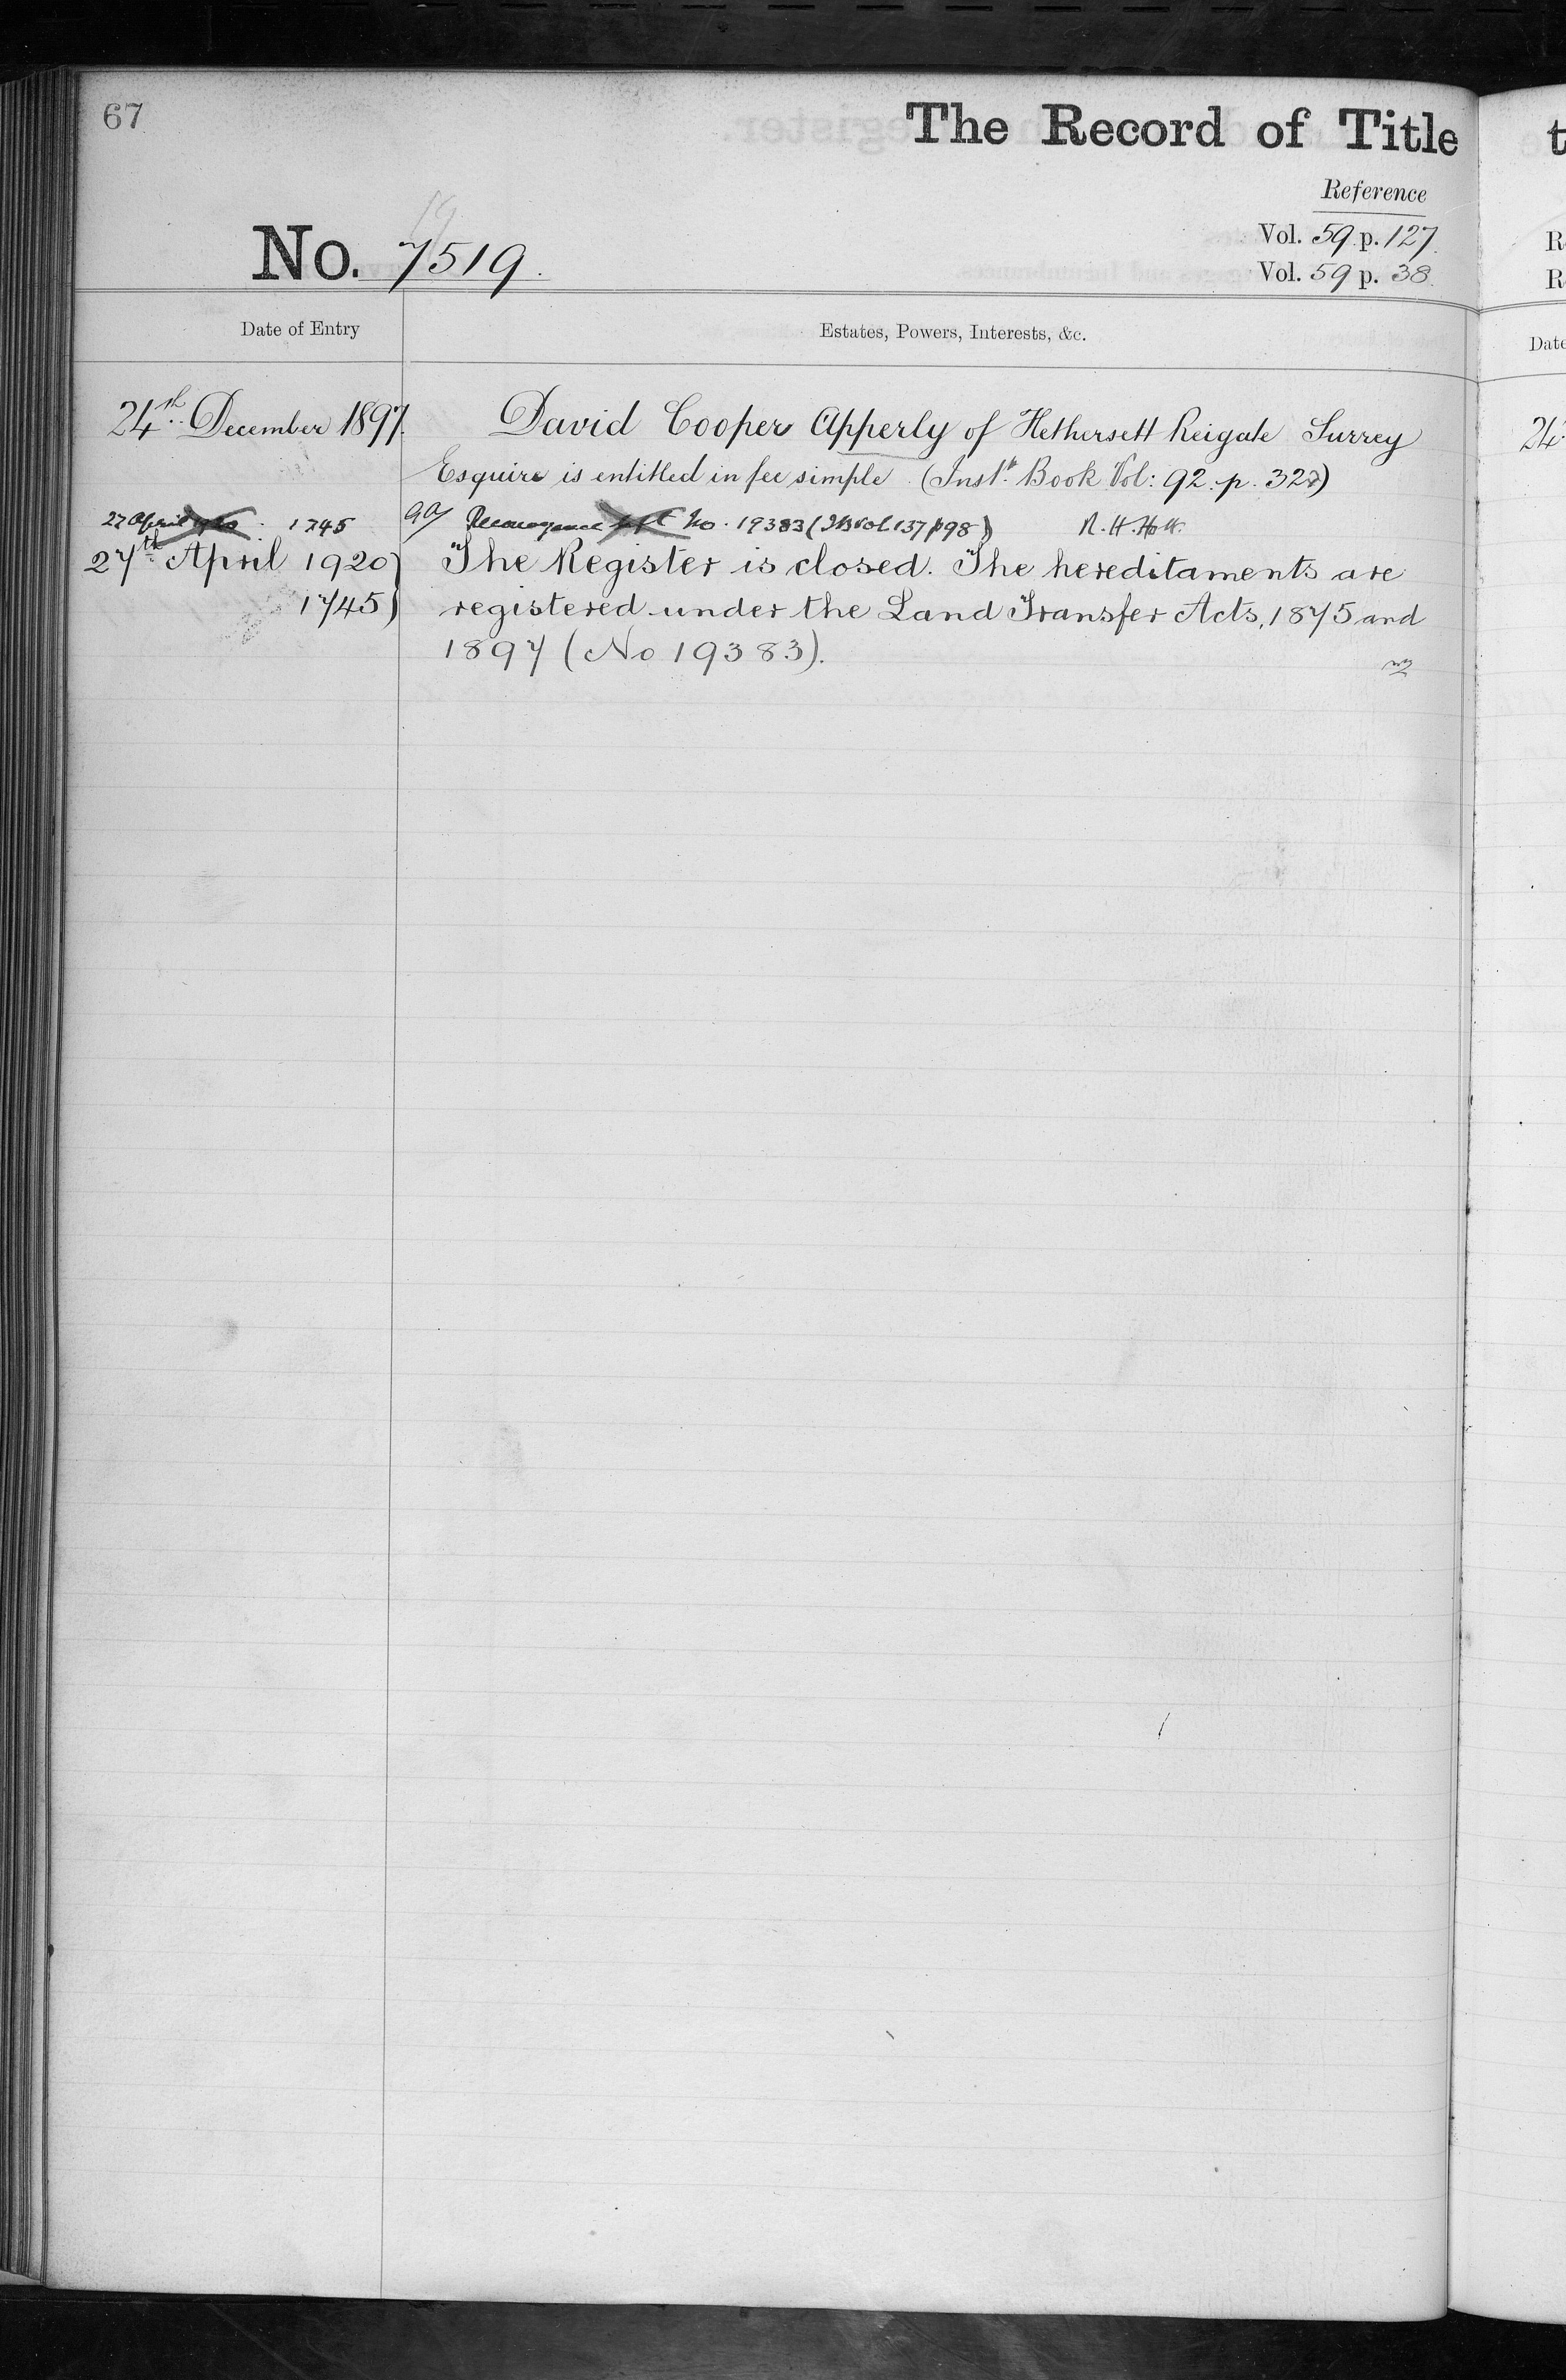 67
The Record of Title
Reference
Vol. 59 p. 127
Vol. 59 p. 38
No. 7519.
19
Date of Entry
Estates, Powers, Interests, &c.
24th December 1897.
David Cooper Apperly of Hethersett Reigate Surrey
Esquire is entitled in fee simple (Instt. Book Vol: 92. p. 327)
27 April 1920 1745
No. 19383 (IB Vol. 137 p98) R. H. Holt.
27th April 1920)
1745)
The Register is closed. The hereditaments are
registered under the Land Transfer Acts, 1875 and
1897 (No 19383).
t
R
R
Date
24